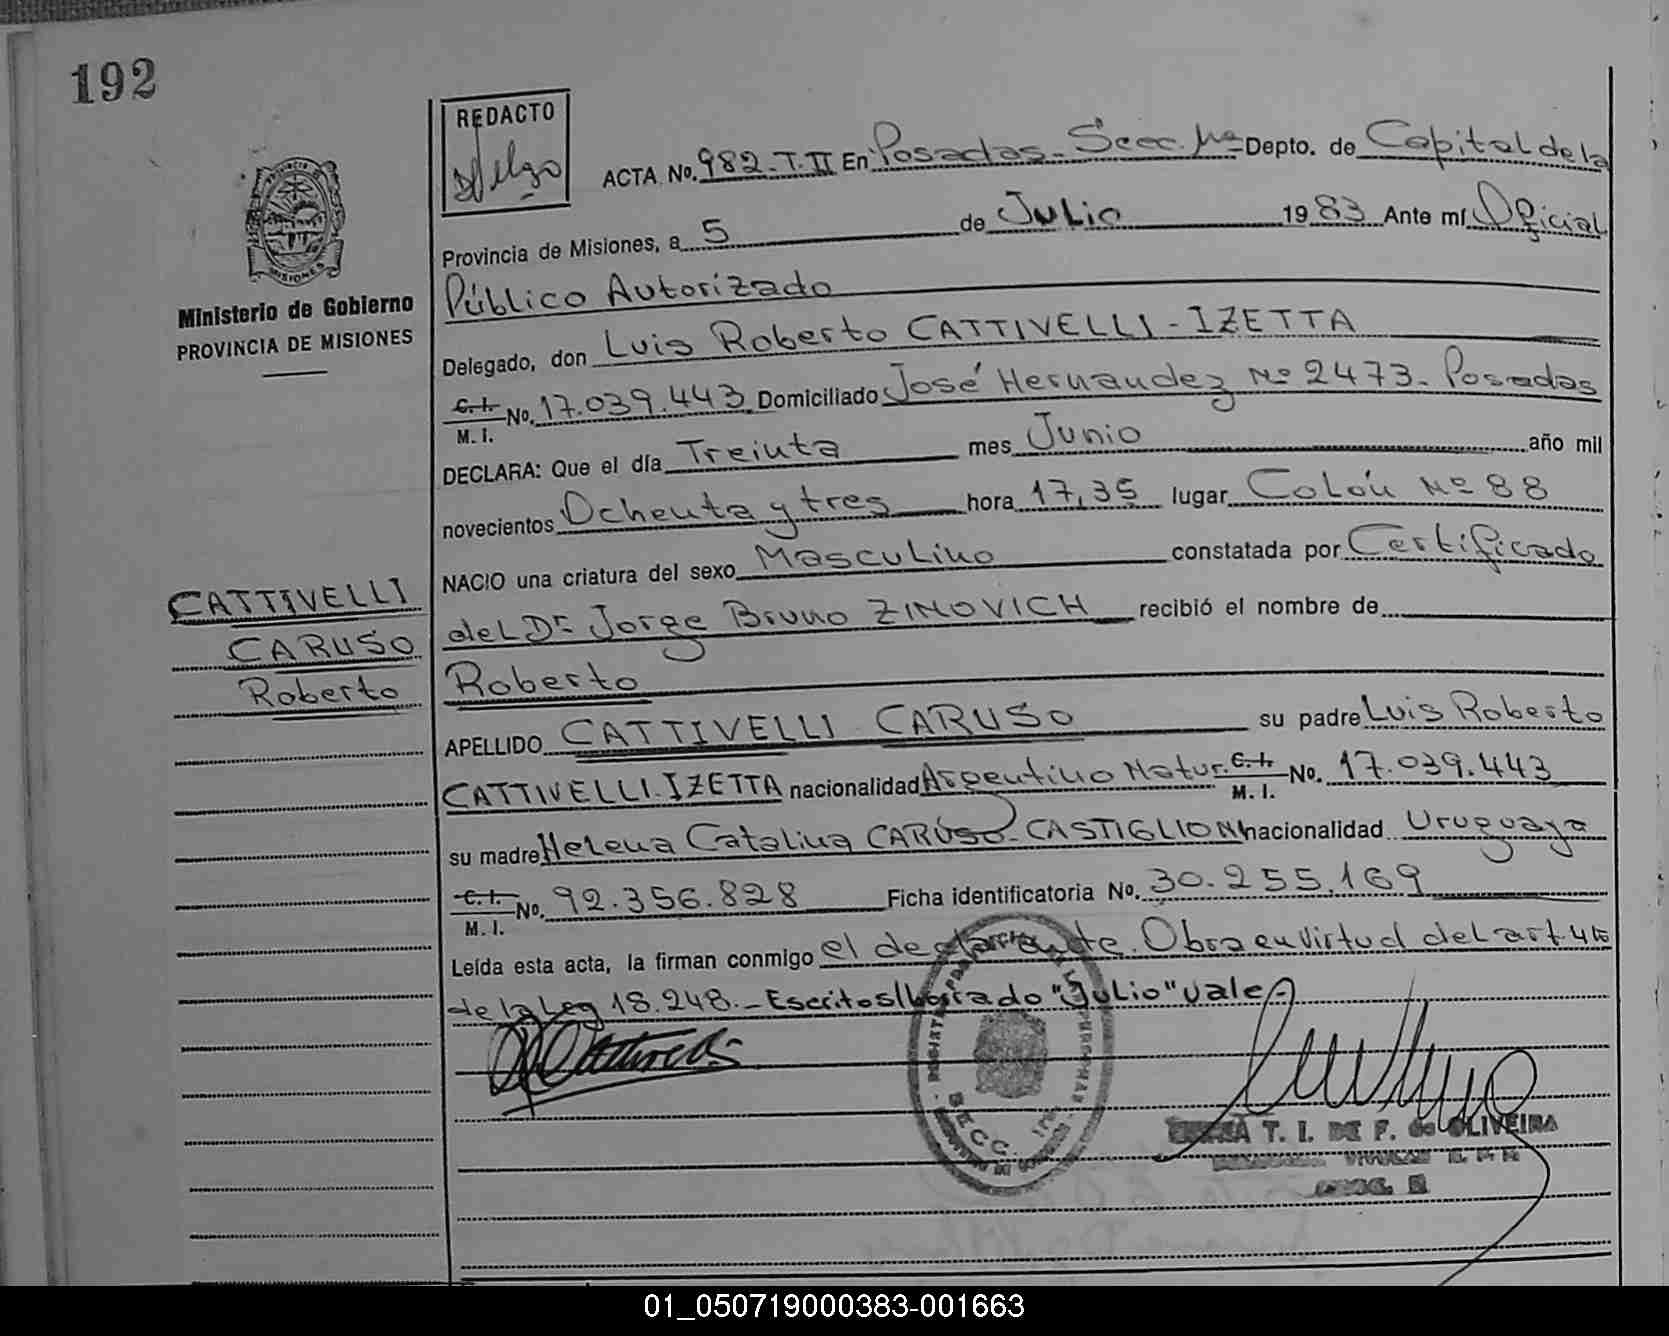 192
REDACTO
ACTA No. 982-T.II En Posadas-Secc. 1ra Depto. de Capital de la
Provincia de Misiones, a 5 de Julio 1983 Ante mí Oficial
Público Autorizado
Ministerio de Gobierno
PROVINCIA DE MISIONES
MISIONES
Delegado, don Luis Roberto CATTIVELLI-IZETTA
C.I. M.I. No. 17.039.443 Domiciliado José Hernandez Nº 2473- Posadas
DECLARA: Que el día Treinta mes Junio año mil
novecientos Ochenta y tres hora 17,35 lugar Colón Nº 88
NACIO una criatura del sexo Masculino constatada por Certificado
del Dr. Jorge Bruno ZINOVICH recibió el nombre de
CATTIVELLI
CARUSO
Roberto
Roberto
APELLIDO CATTIVELLI CARUSO su padre Luis Roberto
CATTIVELLI-IZETTA nacionalidad Argentino Natur. C.I. M.I. No. 17.039.443
su madre Helena Catalina CARUSO-CASTIGLIONI nacionalidad Uruguaya
C.I. M.I. No. 92.356.828 Ficha identificatoria No. 30.255.169
Leída esta acta, la firman conmigo el declarante. Obra en virtud del art. 46
de la Ley 18.248.- Escritos/borrado "Julio" vale-
SECC. 1ra.
T. I. DE F. de OLIVEIRA
01_050719000383-001663